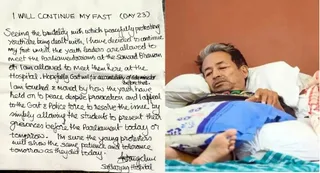 I WILL CONTINUE MY FAST (DAY 23)
Seeing the brutality with which peacefully protesting
youth are being dealt with, I have decided to continue
my fast until the youth leaders are allowed to
meet the parliamentarians at the Samvad Bhawan
or I am allowed to meet them here at the
Hospital. Hopefully Govt will
I am touched & moved by how the youth have
held on to peace despite provocation and I appeal
to the Govt & Police force to resolve the issue by
simply allowing the student to present their
grievences before the Parliament today or
tomorrow. I'm sure the young protesters
will show the same patience and tolerance
tomorrow as they did today.
Safdarjung Hospital